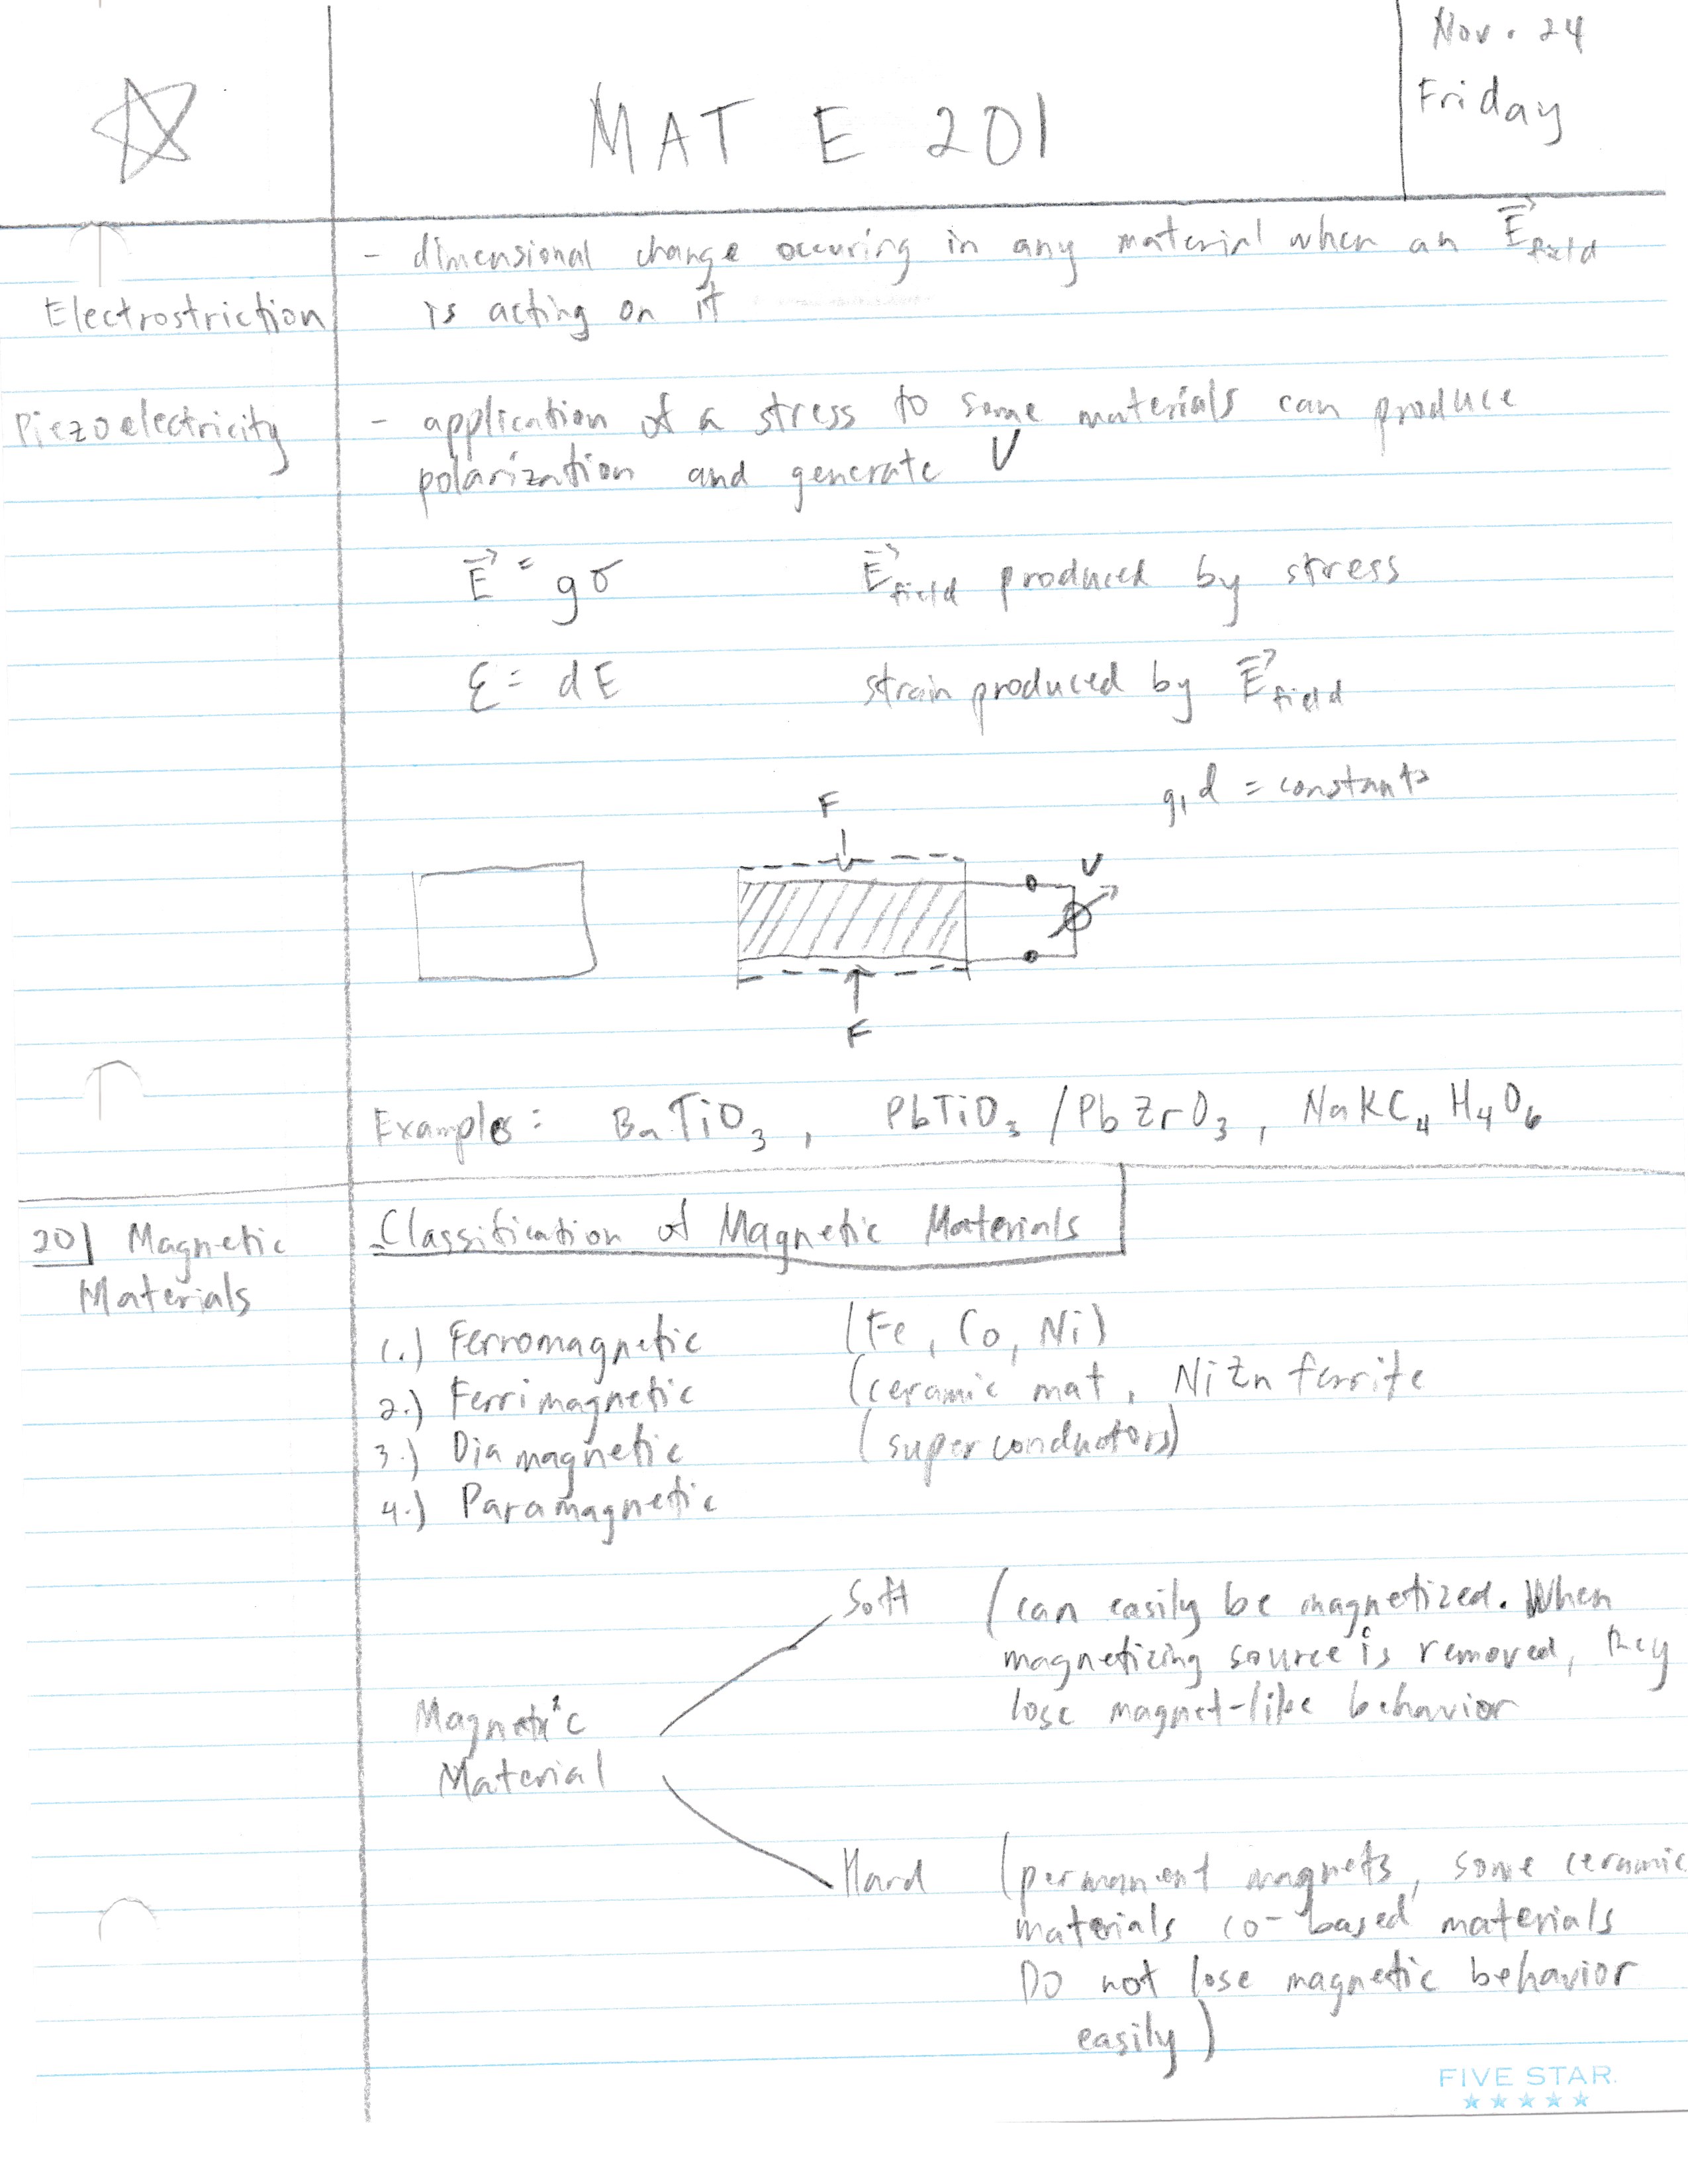 Nov. 24
Friday
MAT E 201
Electrostriction
- dimensional change occuring in any material when an E⃗field
is acting on it
Piezoelectricity
- application of a stress to some materials can produce
polarization and generate V
E⃗ = gσ   E⃗field produced by stress
ε = dE   strain produced by E⃗field
g, d = constants
F
V
F
Examples: BaTiO₃, PbTiO₃/PbZrO₃, NaKC₄H₄O₆
20| Magnetic
Materials
Classification of Magnetic Materials
1.) Ferromagnetic (Fe, Co, Ni)
2.) Ferrimagnetic (ceramic mat, NiZn ferrite
3.) Diamagnetic (superconductors)
4.) Paramagnetic
Magnetic
Material
Soft (can easily be magnetized. When
magnetizing source is removed, they
lose magnet-like behavior
Hard (permanent magnets, some ceramic
materials co-based materials
Do not lose magnetic behavior
easily)
FIVE STAR.